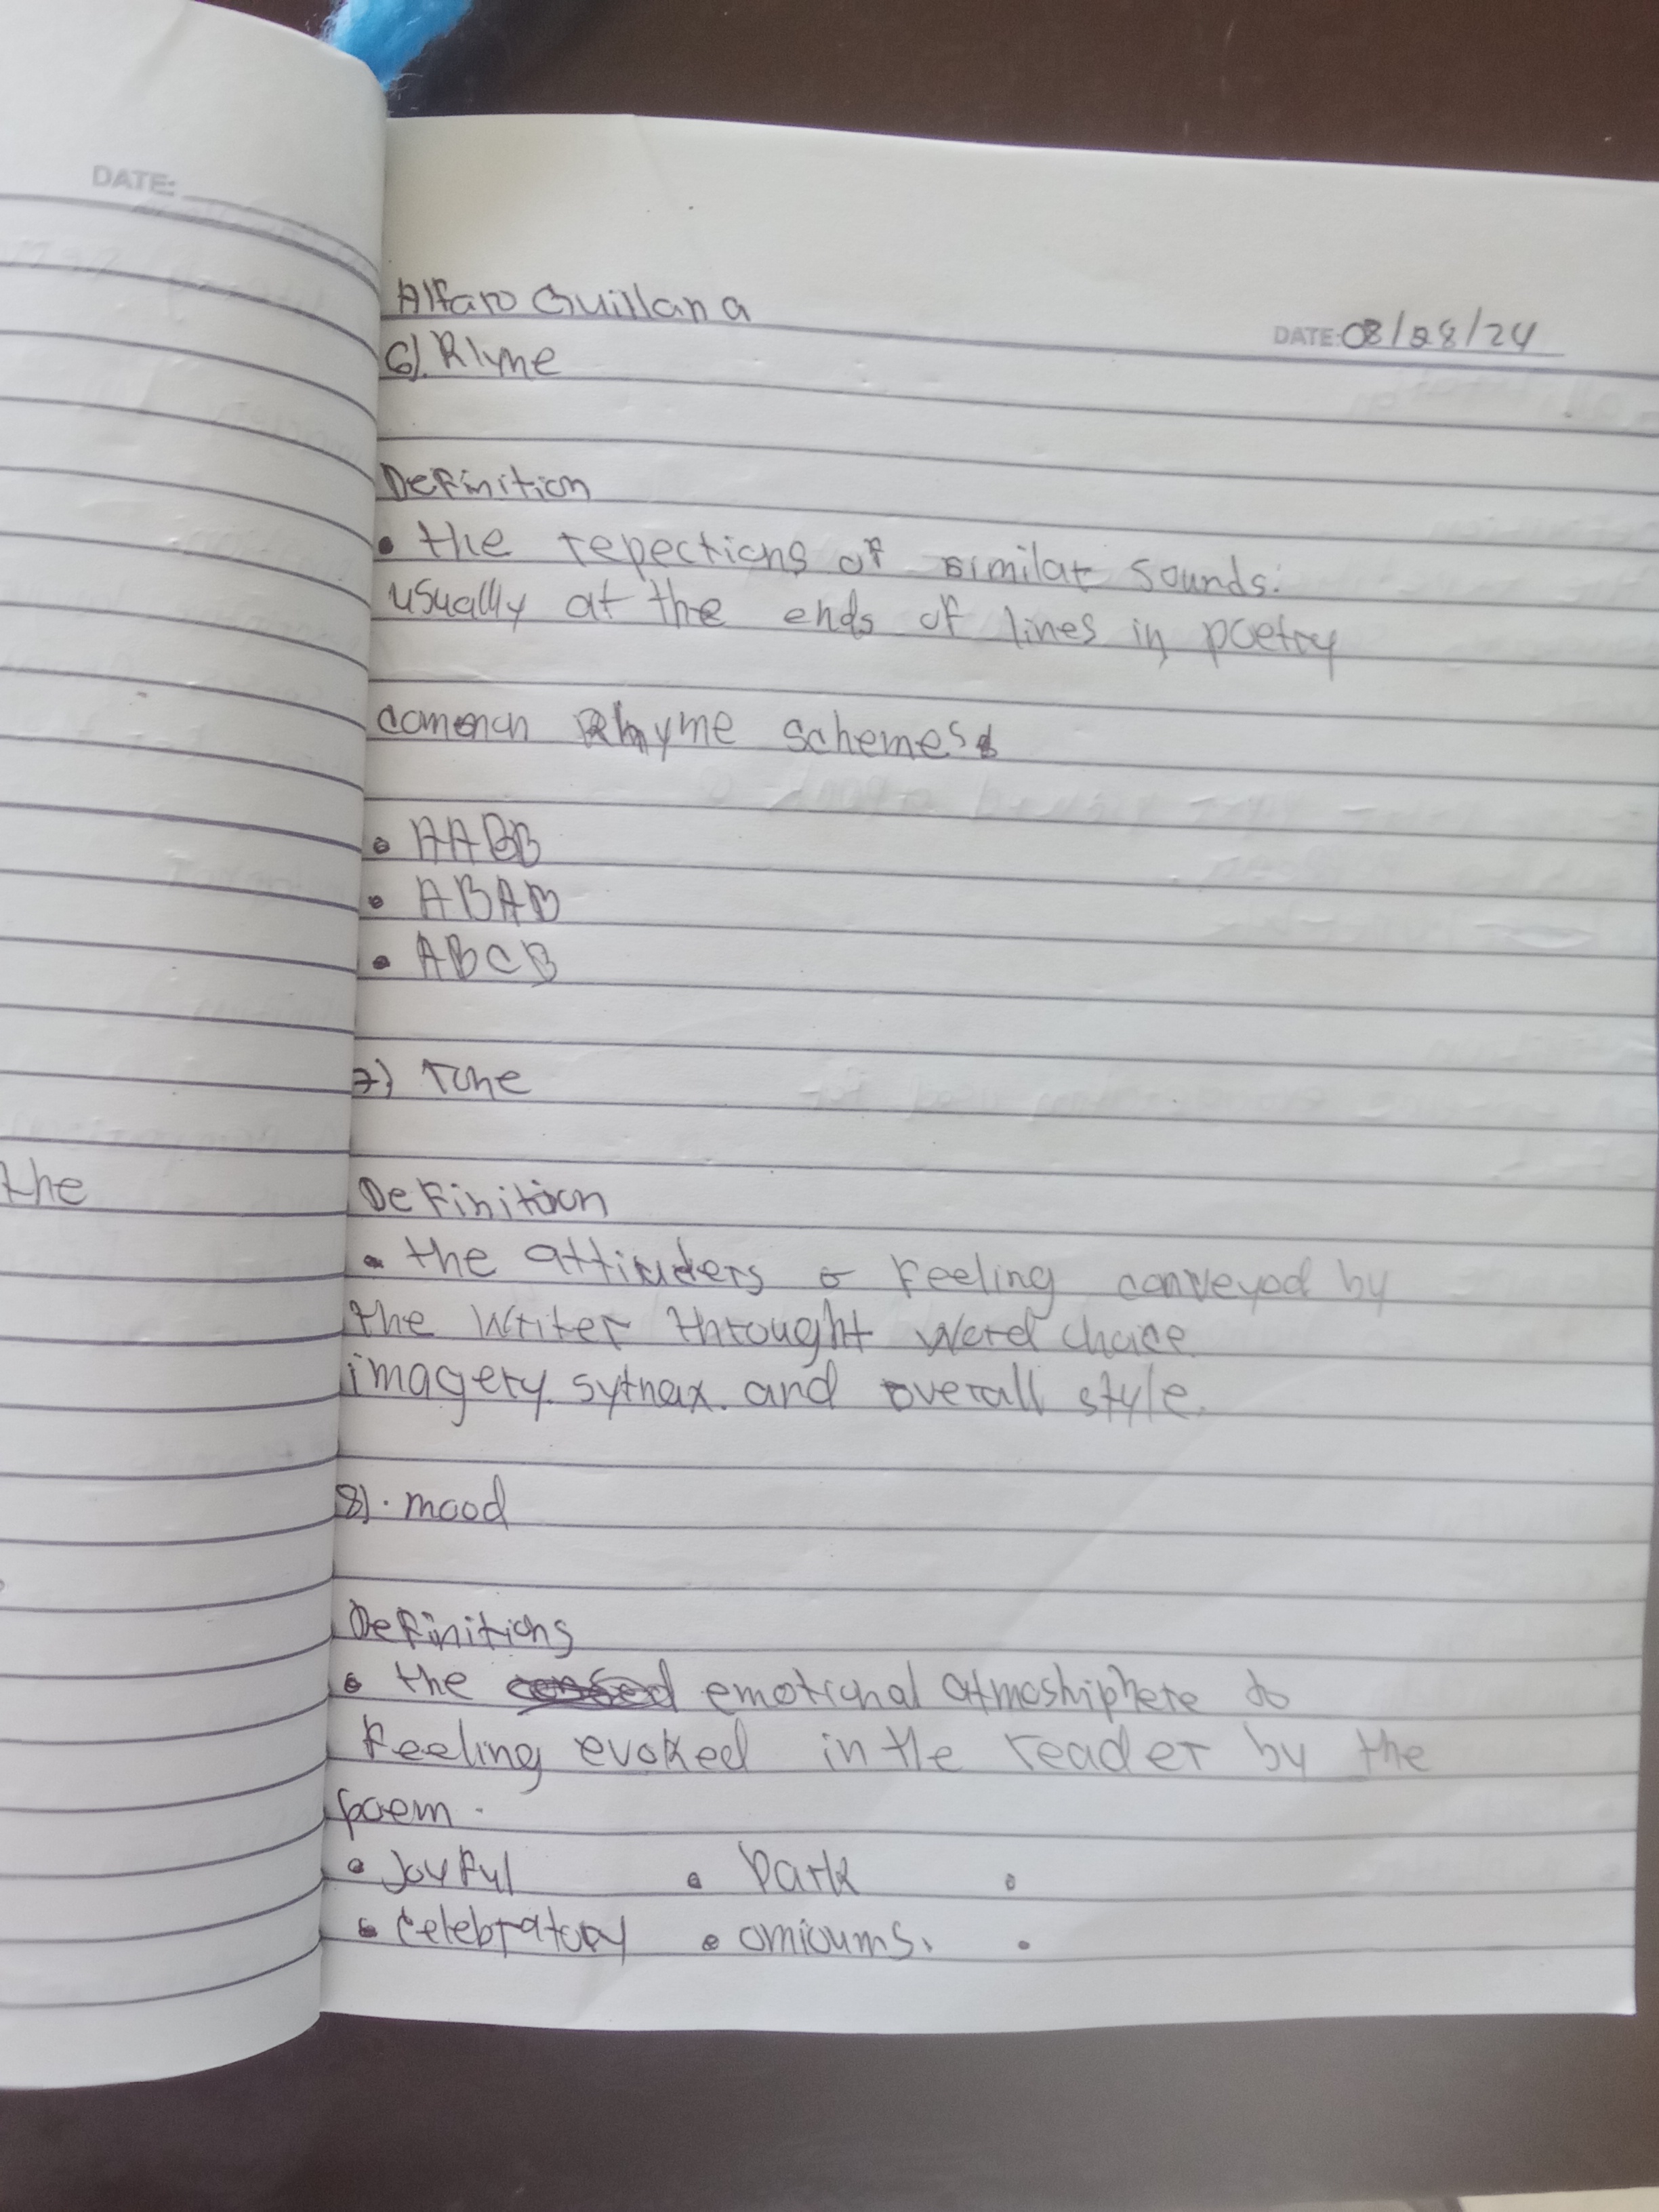 DATE:
Alfaro Guillana
DATE: 08/28/24
6). Rlyme
Definition
• the repections of similar sounds.
usually at the ends of lines in poetry
common Rhyme schemes
• AABB
• ABAB
• ABCB
7) Tone
the
Definition
• the attituders o feeling conveyod by
the Writer throught Word choice
imagery. sytnax. and overall style.
8). mood
Definitions
• the emotional atmoshiphere to
feeling evoked in the reader by the
poem.
• Joyful • Dark •
• celebratory • omioums. •